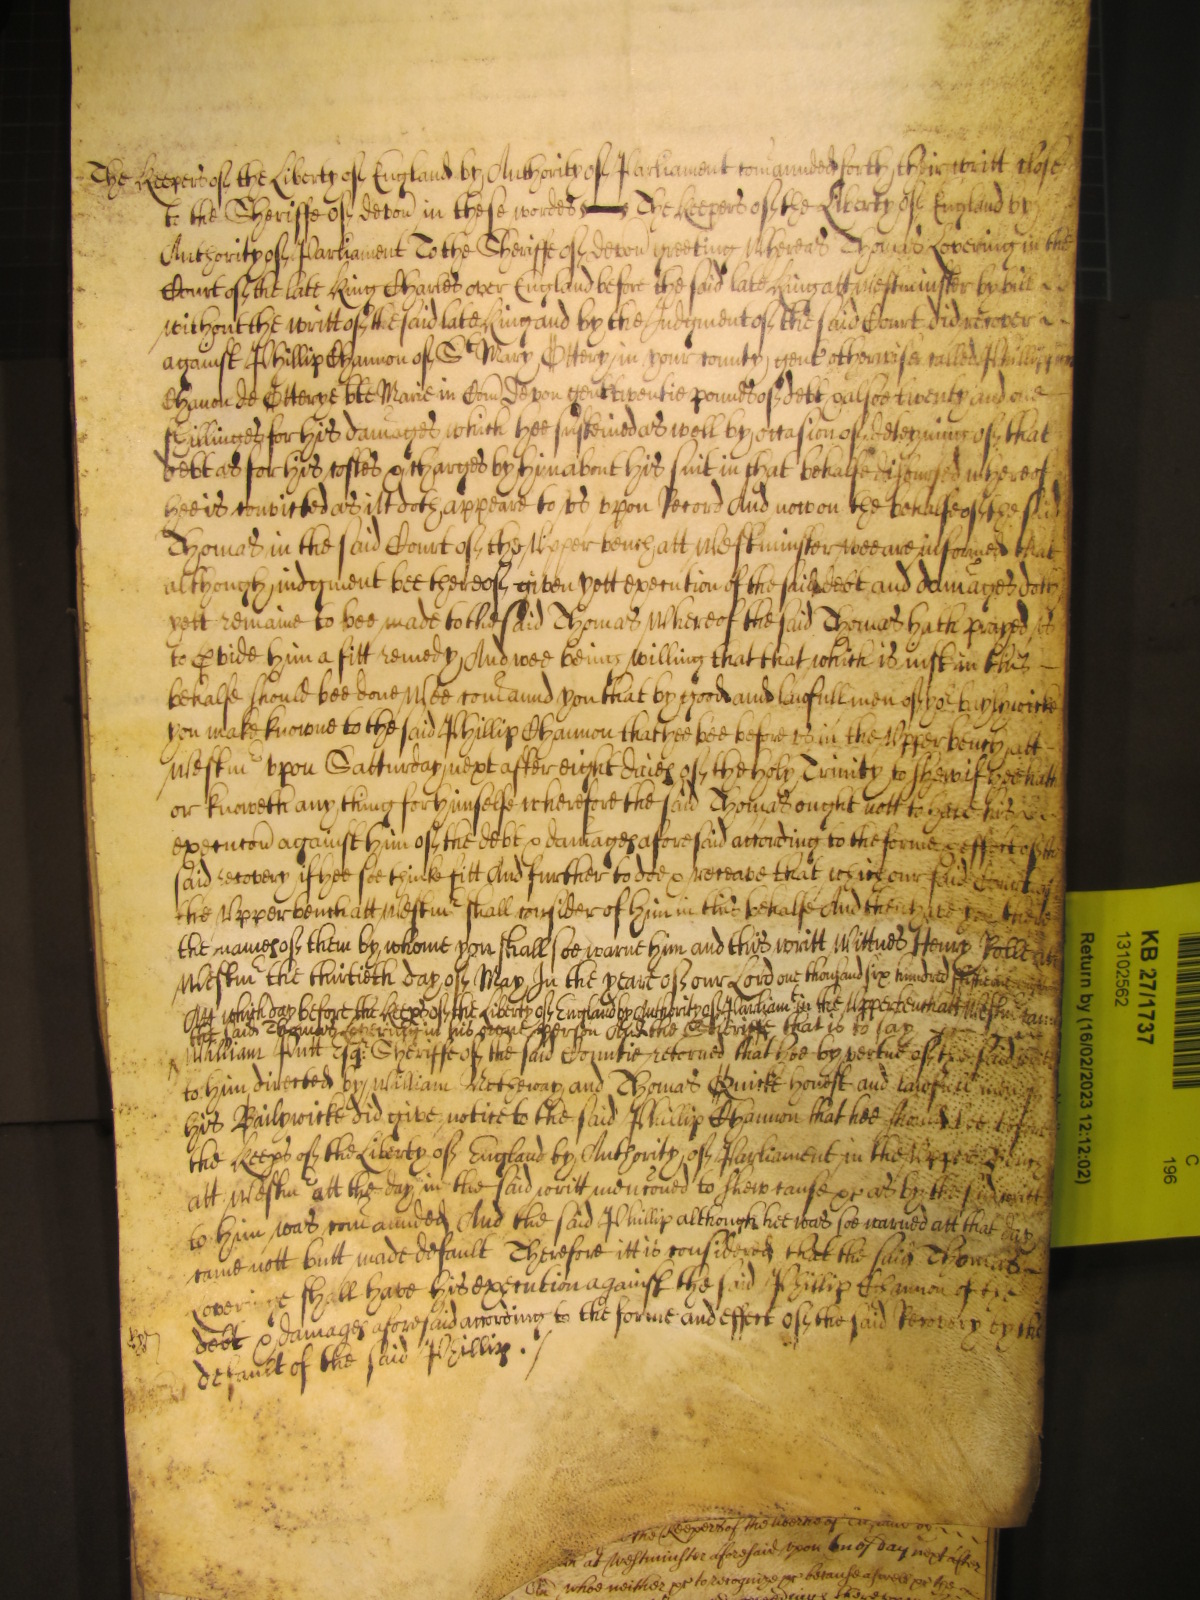 The Keepers of the Liberty of England by Authority of Parliament comaunded forth their writt close
to the Sheriffe of devon in these wordes The Keepers of the Liberty of England by
Authority of Parliament To the Sheriffe of devon greeting Whereas Thomas Lovering in the
Court of the late King Charles over England before the said late King att Westminster by bill
without the writt of the said late King and by the Judgment of the said Court did recover
against Phillip Channon of St Mary Ottery in your county gent otherwise called Phillippum
Chanon de Otterye bte Marie in Com Devon gent twentie poundes of debt & alsoe twenty and one
shillinges for his damages which hee susteined as well by occasion of deteyning of that
debt as for his costes & charges by him about his suit in that behalfe disbursed whereof
hee is convicted as itt doth appeare to us upon Record And now on the behalfe of the said
Thomas in the said Court of the Upper bench att Westminster wee are informed that
although judgment bee thereof given yett execution of the said debt and damages doth
yett remaine to bee made to the said Thomas Whereof the said Thomas hath prayed us
to pvide him a fitt remedy And wee being willing that that which is just in this
behalfe should bee done Wee comaund you that by good and lawfull men of yor baylywicke
you make knowne to the said Phillip Channon that hee bee before us in the Upper bench att
Westmr upon Satturday next after eight daies of the holy Trinity to shew if hee hath
or knoweth any thing for himselfe wherefore the said Thomas ought nott to have his
execucon against him of the debt & damages aforesaid according to the forme & effect of the
said recovery if hee soe thinke fitt And further to doe & receave that which our said Court of
the Upper bench att Westmr shall consider of him in this behalfe And then have you there
the names of them by whome you shall soe warne him and this writt Wittnes Henry Rolle att
Westmr the thirtieth day of May In the yeare of our Lord one thousand six hundred fiftie
Att which day before the Keeps of the Liberty of England by Authority of Parliamt in the Upper bench att Westmr came
the said Thomas Lovering in his owne person And the Sheriffe that is to say
William Putt Esqr Sheriffe of the said Countie retorned that hee by vertue of the said writt
to him directed by William Metheway and Thomas Quicke honest and lawfull men of
his Bailywicke did give notice to the said Phillip Channon that hee should bee before
the Keeps of the Liberty of England by Authority of Parliament in the Upper Bench
att Westmr att the day in the said writt mencioned to shew cause &c as by the said writt
to him was comaunded And the said Phillip although hee was soe warned att that day
came nott butt made default Therefore itt is considered that the said Thomas
Lovering shall have his execution against the said Phillip Channon of the
debt & damages aforesaid according to the forme and effect of the said Recovery by the
default of the said Phillip .
the Keepers of the liberty of England
at Westminster aforesaid upon day next after
whoe neither &c to recognize &c because aswell &c the
KB 27/1737
13102562
Return by (16/02/2023 12:12:02)
C
196